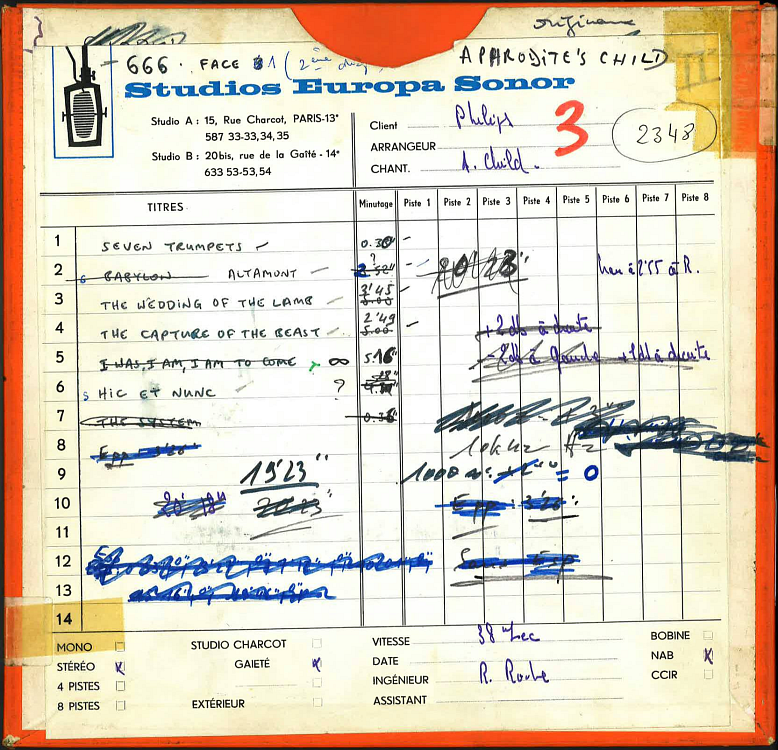 originaux
666. FACE 1 (2ème
APHRODITE'S CHILD
Studios Europa Sonor
II
Studio A : 15, Rue Charcot, PARIS-13e
587 33-33,34,35
Studio B : 20bis, rue de la Gaîté - 14e
633 53-53,54
Client Philips
ARRANGEUR
CHANT. A. Child.
3
2348
TITRES Minutage Piste 1 Piste 2 Piste 3 Piste 4 Piste 5 Piste 6 Piste 7 Piste 8
1 SEVEN TRUMPETS 0.30"
2 BABYLON ALTAMONT ? 2.52" 20'23" 2'55 à R.
3 THE WEDDING OF THE LAMB 3'45 5.00
4 THE CAPTURE OF THE BEAST 2'49 5.00 +2db à droite
5 I WAS, I AM, I AM TO COME ∞ 5.16" -2db à gauche +1db à droite
6 S HIC ET NUNC ?
7 THE SYSTEM 0.36"
8 Epp = 3'26" 10kHz Hz
9 19'23" 1000 = 0
10 20'18" 20'23" Epp : 3'26"
11
12
13
14
MONO
STÉRÉO x
4 PISTES
8 PISTES
STUDIO CHARCOT
GAIETÉ x
EXTÉRIEUR
VITESSE 38"/sec
DATE
INGÉNIEUR R. Roche
ASSISTANT
BOBINE
NAB x
CCIR